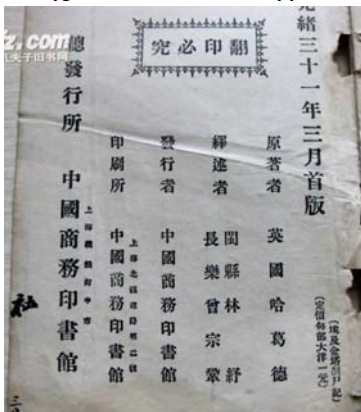 光緒三十一年三月首版
(埃及金塔剖尸記)
(定價每部大洋一元)
翻印必究
原著者 英國哈葛德
繹述者 閩縣林紓
長樂曾宗鞏
發行者 中國商務印書館
印刷所 上海北福建路第二號
中國商務印書館
總發行所 上海棋盤街中市
中國商務印書館
z.com
夫子旧书网